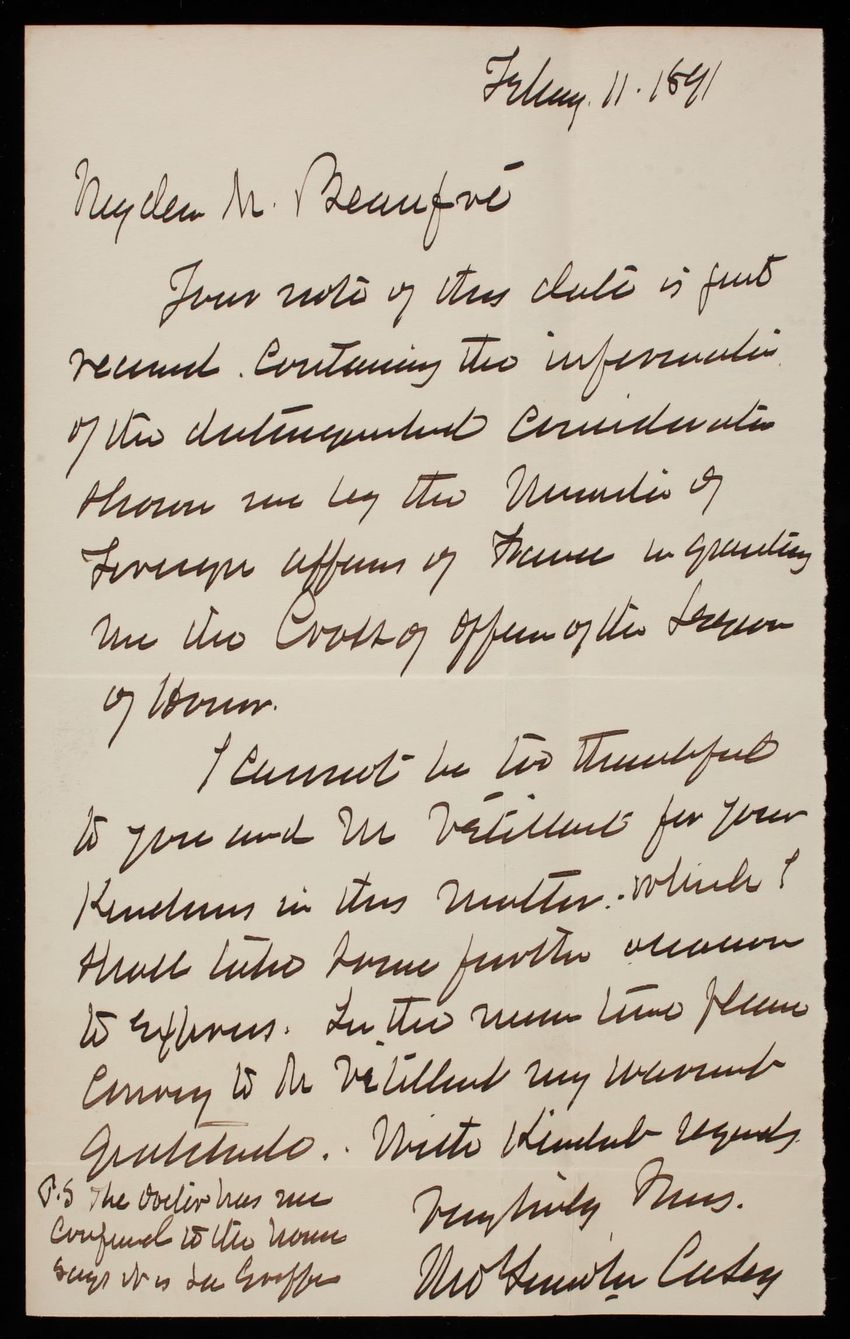 Febuary. 11. 1891
My dear M. Beaufré
Your note of this date is just
received. Containing the information
of the distinguished consideration
shown me by the Minister of
Foreign affairs of France in granting
me the Cross of Officer of the Legion
of Honor.
I cannot be too thankful
to you and M Vétillart for your
Kindness in this matter. which I
shall take some further occasion
to express. In the mean time please
Convey to M Vétillart my warmest
gratitude. With Kindest regards
Very truly Yours.
Thos Lincoln Casey
P.S The doctor has me
confined to the house
says it is La Grippe